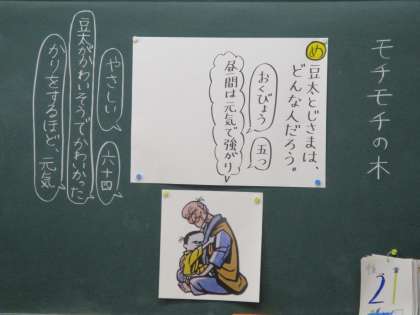 モチモチの木
め
豆太とじさまは、
どんな人だろう。
おくびょう
五つ
昼間は元気で強がり
やさしい
六十四
豆太がかわいそうでかわいかった
かりをするほど、元気
21